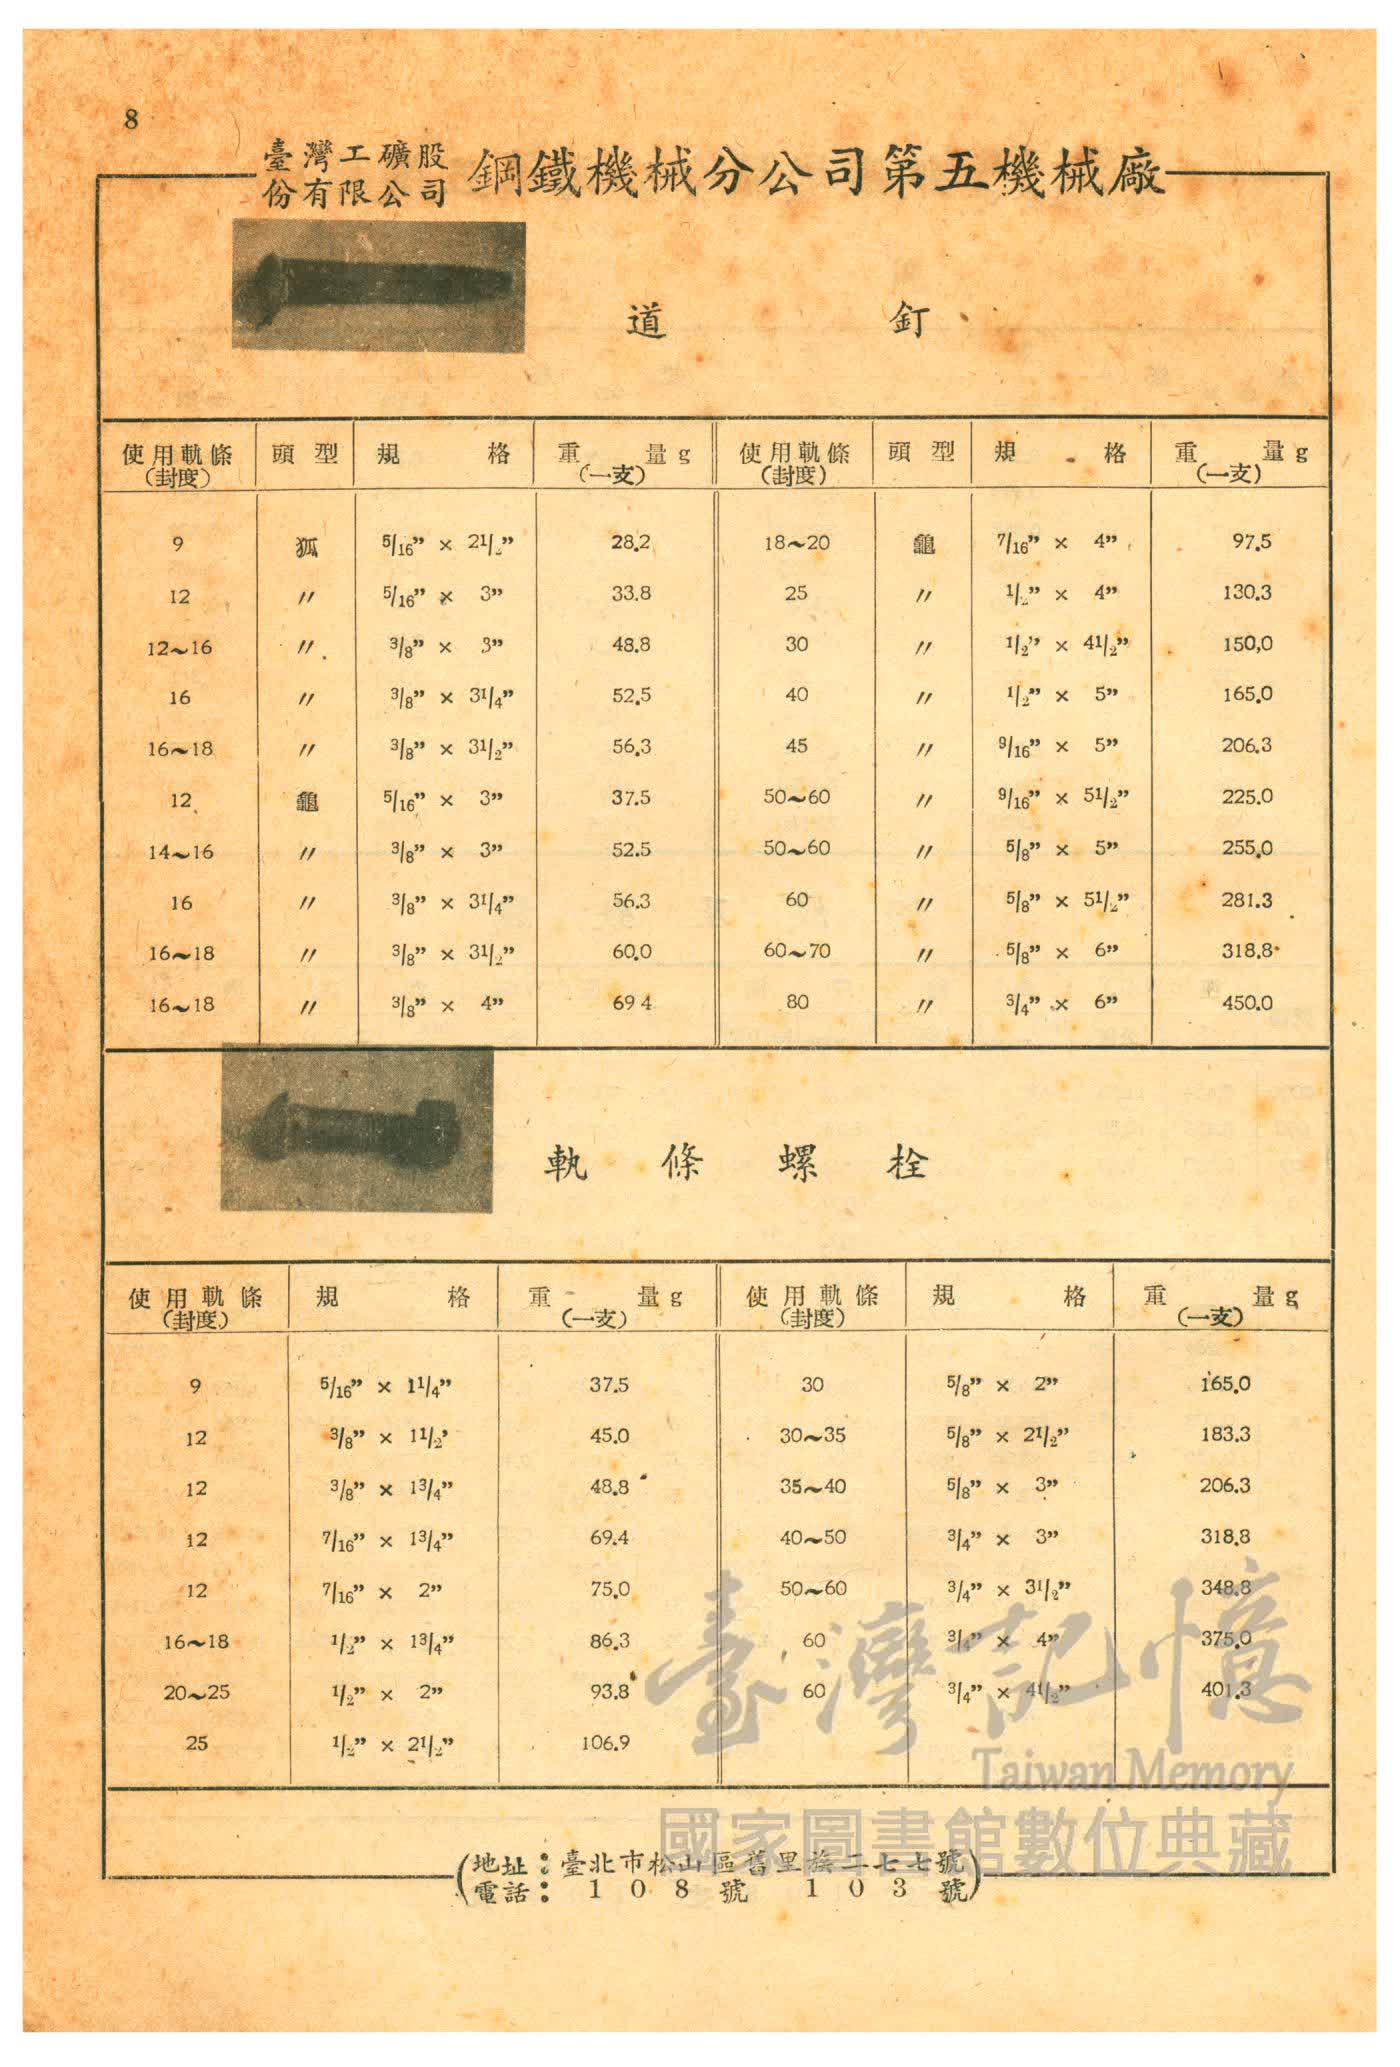 8
臺灣工礦股
份有限公司
鋼鐵機械分公司第五機械廠
道 釘
使用軌條 頭型 規 格 重 量g 使用軌條 頭型 規 格 重 量g
(封度) (一支) (封度) (一支)
9 狐 5/16” × 21/2” 28.2 18~20 龜 7/16” × 4” 97.5
12 〃 5/16” × 3” 33.8 25 〃 1/2” × 4” 130.3
12~16 〃 3/8” × 3” 48.8 30 〃 1/2” × 41/2” 150,0
16 〃 3/8” × 31/4” 52.5 40 〃 1/2” × 5” 165.0
16~18 〃 3/8” × 31/2” 56.3 45 〃 9/16” × 5” 206.3
12 龜 5/16” × 3” 37.5 50~60 〃 9/16” × 51/2” 225.0
14~16 〃 3/8” × 3” 52.5 50~60 〃 5/8” × 5” 255.0
16 〃 3/8” × 31/4” 56.3 60 〃 5/8” × 51/2” 281.3
16~18 〃 3/8” × 31/2” 60.0 60~70 〃 5/8” × 6” 318.8
16~18 〃 3/8” × 4” 69 4 80 〃 3/4” × 6” 450.0
執條螺栓
使用軌條 規 格 重 量g 使用軌條 規 格 重 量g
(封度) (一支) (封度) (一支)
9 5/16” × 11/4” 37.5 30 5/8” × 2” 165.0
12 3/8” × 11/2’ 45.0 30~35 5/8” × 21/2” 183.3
12 3/8” × 13/4” 48.8 35~40 5/8” × 3” 206.3
12 7/16” × 13/4” 69.4 40~50 3/4” × 3” 318.8
12 7/16” × 2” 75.0 50~60 3/4” × 31/2” 348.8
16~18 1/2” × 13/4” 86.3 60 3/4” × 4” 375.0
20~25 1/2” × 2” 93.8 60 3/4” × 41/2” 401.3
25 1/2” × 21/2” 106.9
臺灣記憶
Taiwan Memory
國家圖書館數位典藏
(地址：臺北市松山區舊里族二七七號)
(電話：108號 103號)